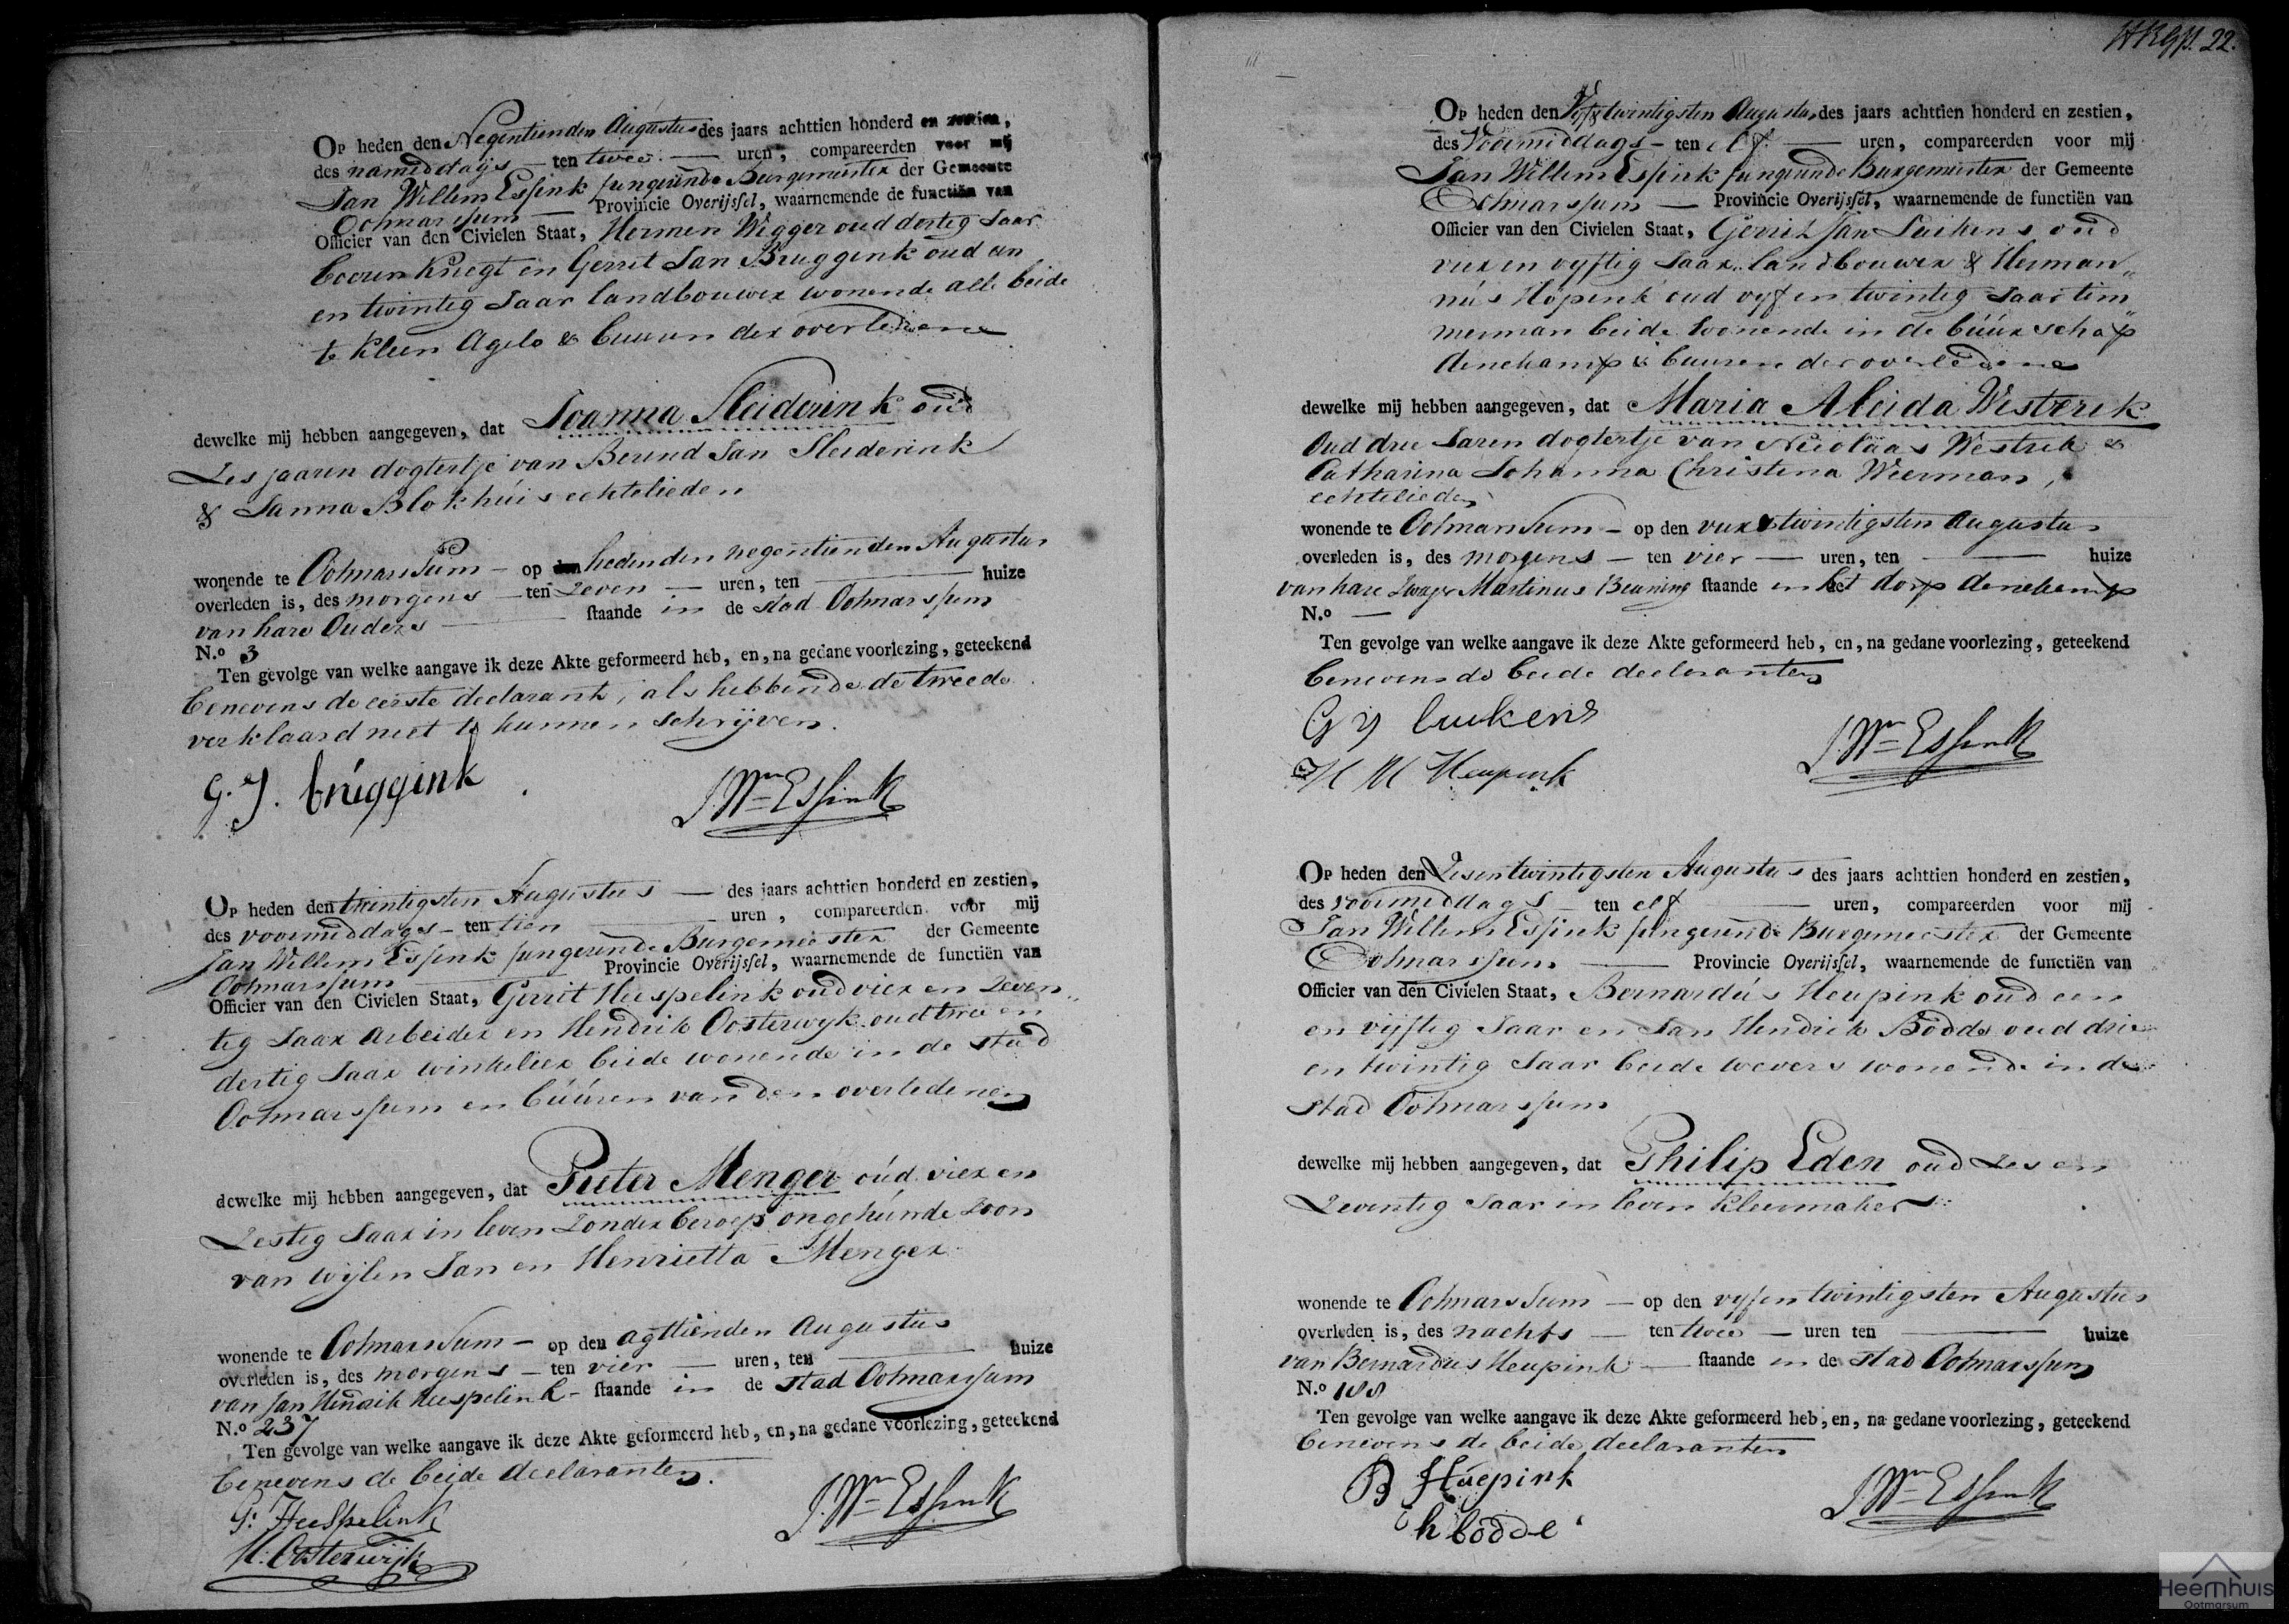 Op heden den Negentienden Augustus des jaars achttien honderd en zestien,
des namiddags — ten twee — uren, compareerden voor mij
Jan Willem Essink fungerende Burgemeester der Gemeente
Ootmarssum — Provincie Overijssel, waarnemende de functiën van
Officier van den Civielen Staat, Hermen Wigger oud dertig Jaar
boeren Knegt en Gerrit Jan Bruggink oud een
en twintig Jaar landbouwer wonende alle beide
te Kleen Agelo & buuren der overledene
dewelke mij hebben aangegeven, dat Joanna Sleiderink oud
Zes jaaren dogtertje van Berend Jan Sleiderink
& Janna Blokhúis echtelieden
wonende te Ootmarssum — op den heden den negentienden Augustus
overleden is, des morgens — ten Zeven — uren, ten — huize
van hare Ouders — staande in de stad Ootmarssum
N.o 3
Ten gevolge van welke aangave ik deze Akte geformeerd heb, en, na gedane voorlezing, geteekend
benevens de eerste declarant, als hebbende de tweede
verklaard niet te kunnen schrijven.
G. J. brúggink
J. Wm Essink
Op heden den twintigsten Augustus — des jaars achttien honderd en zestien,
des voormiddags — ten tien — uren, compareerden voor mij
Jan Willem Essink fungerende Burgemeester der Gemeente
Ootmarssum — Provincie Overijssel, waarnemende de functiën van
Officier van den Civielen Staat, Gerrit Heespelink oud vier en Zeven„
tig Jaar Arbeider en Hendrik Oosterwyk oud twee en
dertig Jaar winkelier beide wonende in de stad
Ootmarssum en búúren van den overledenen
dewelke mij hebben aangegeven, dat Pieter Menger oúd vier en
Zestig Jaar in leven Zonder beroep ongehúwde Zoon
van wijlen Jan en Henrietta Menger
wonende te Ootmarssum — op den agttienden Augustus
overleden is, des morgens — ten vier — uren, ten — huize
van Jan Hendrik Heespelink — staande in de stad Ootmarssum
N.o 237
Ten gevolge van welke aangave ik deze Akte geformeerd heb, en, na gedane voorlezing, geteekend
benevens de beide declaranten.
G: Heespelink
H: Oosterwijk
J. Wm Essink
22.
Op heden den Vyf & twintigsten Augustus des jaars achttien honderd en zestien,
des Voormiddags — ten elf — uren, compareerden voor mij
Jan Willem Essink fungerende Burgemeester der Gemeente
Ootmarssum — Provincie Overijssel, waarnemende de functiën van
Officier van den Civielen Staat, Gerrit Jan Luikens oud
vier en vyftig Jaar landbouwer & Herman„
nús Hopink oud vyf en twintig Jaar tim„
merman beide Woonende in de búúrschap
denekamp & buuren der overledene
dewelke mij hebben aangegeven, dat Maria Aleida Westerik
Oud drie Jaren dogtertje van Nicolaas Westrik &
Catharina Johanna Christina Weerman,
echtelieden
wonende te Ootmarssum — op den vier & twintigsten Augustus
overleden is, des morgens — ten vier — uren, ten — huize
van hare Zwager Martinus Beuning staande in het dorp denekamp
N.o —
Ten gevolge van welke aangave ik deze Akte geformeerd heb, en, na gedane voorlezing, geteekend
benevens de beide declaranten
G J luikens
H Heupink
J. Wm Essink
Op heden den Zesentwintigsten Augustus des jaars achttien honderd en zestien,
des voormiddags — ten elf — uren, compareerden voor mij
Jan Willem Essink fungerende Burgemeester der Gemeente
Ootmarssum — Provincie Overijssel, waarnemende de functiën van
Officier van den Civielen Staat, Bernardús Heupink oud een
en vijftig Jaar en Jan Hendrik Bodde oud drie
en twintig Jaar beide wevers wonende in de
stad Ootmarssum
dewelke mij hebben aangegeven, dat Philip Eden oud Zes en
Zeventig Jaar in leven Kleermaker
wonende te Ootmarssum — op den vyfentwintigsten Augustus
overleden is, des nachts — ten twee — uren ten — huize
van Bernardus Heupink — staande in de stad Ootmarssum
N.o 188
Ten gevolge van welke aangave ik deze Akte geformeerd heb, en, na gedane voorlezing, geteekend
benevens de beide declaranten
B Húepink
h bodde
J. Wm Essink
Heemhuis
Ootmarsum